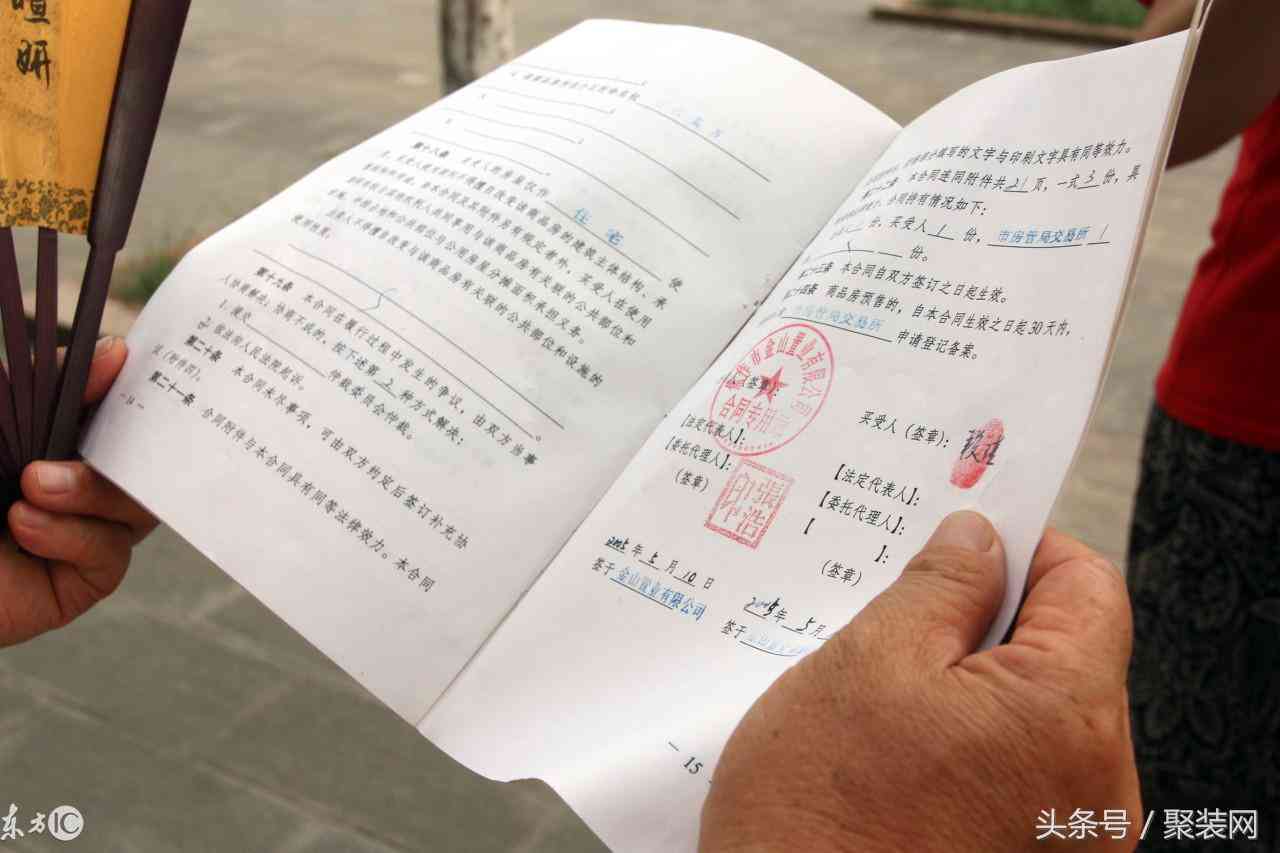 喧
妍
第十八条 买受人的房屋仅作
住宅
使
用，买受人使用期间不得擅自改变该商品房的建筑主体结构、承
重结构和用途。除本合同及其附件另有规定者外，买受人在使用
期间有权与其他权利人共同享用与该商品房有关联的公共部位和
设施，并按占地和公共部位与公用房屋分摊面积承担义务。
出卖人不得擅自改变与该商品房有关联的公共部位和设施的
使用性质。
第十九条 本合同在履行过程中发生的争议，由双方当事
人协商解决；协商不成的，按下述第2种方式解决：
1. 提交 仲裁委员会仲裁。
2. 依法向人民法院起诉。
第二十条 本合同未尽事项，可由双方约定后签订补充协
议（附件四）。
第二十一条 合同附件与本合同具有同等法律效力。本合同
— 14 —
填写的文字与印刷文字具有同等效力。
第二十二条 本合同连同附件共21页，一式3份，具
合同持有情况如下：
份，买受人1份，市房管局交易所1
份。
第二十三条 本合同自双方签订之日起生效。
第二十四条 商品房预售的，自本合同生效之日起30天内，
市房管局交易所 申请登记备案。
市金山置业有限公司
合同专用章
（签章）：
买受人（签章）：
【法定代表人】：
【法定代表人】：
【委托代理人】：
【委托代理人】：
（签章）
【 】：
（签章）
张浩
印
2005年5月10日
2005年5月
签于金山置业有限公司
签于
— 15
东方IC
头条号 / 聚装网